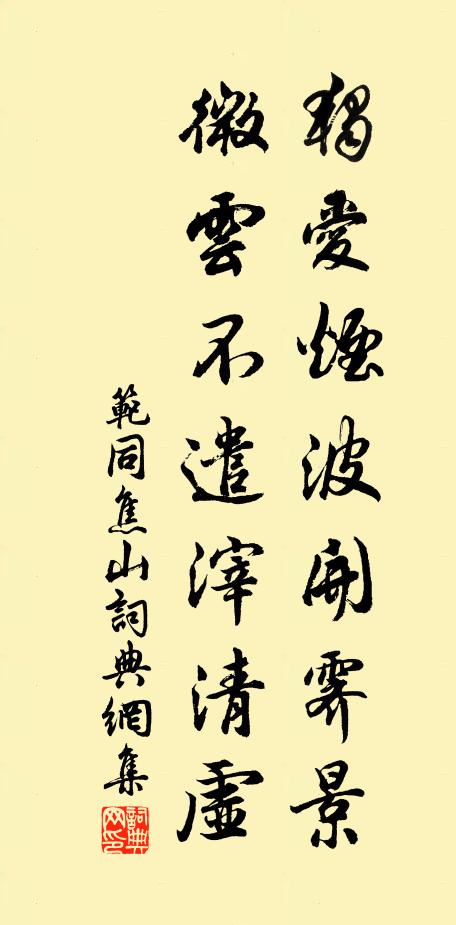 獨愛煙波開霽景
微雲不遣滓清虛
範同焦山詞典網集
詞典網印